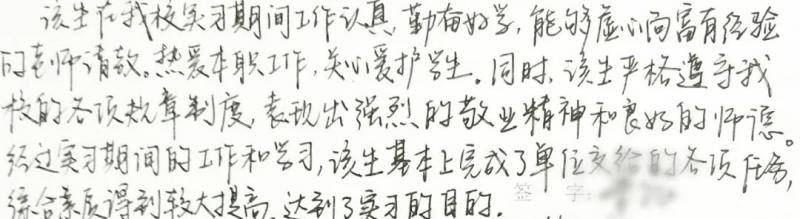 该生在我校实习期间工作认真,勤奋好学,能够虚心向富有经验
的老师请教。热爱本职工作,关心爱护学生。同时,该生严格遵守我
校的各项规章制度,表现出强烈的敬业精神和良好的师德。
经过实习期间的工作和学习,该生基本上完成了单位交给的各项任务,
综合素质得到较大提高,达到了实习的目的。
签 字: